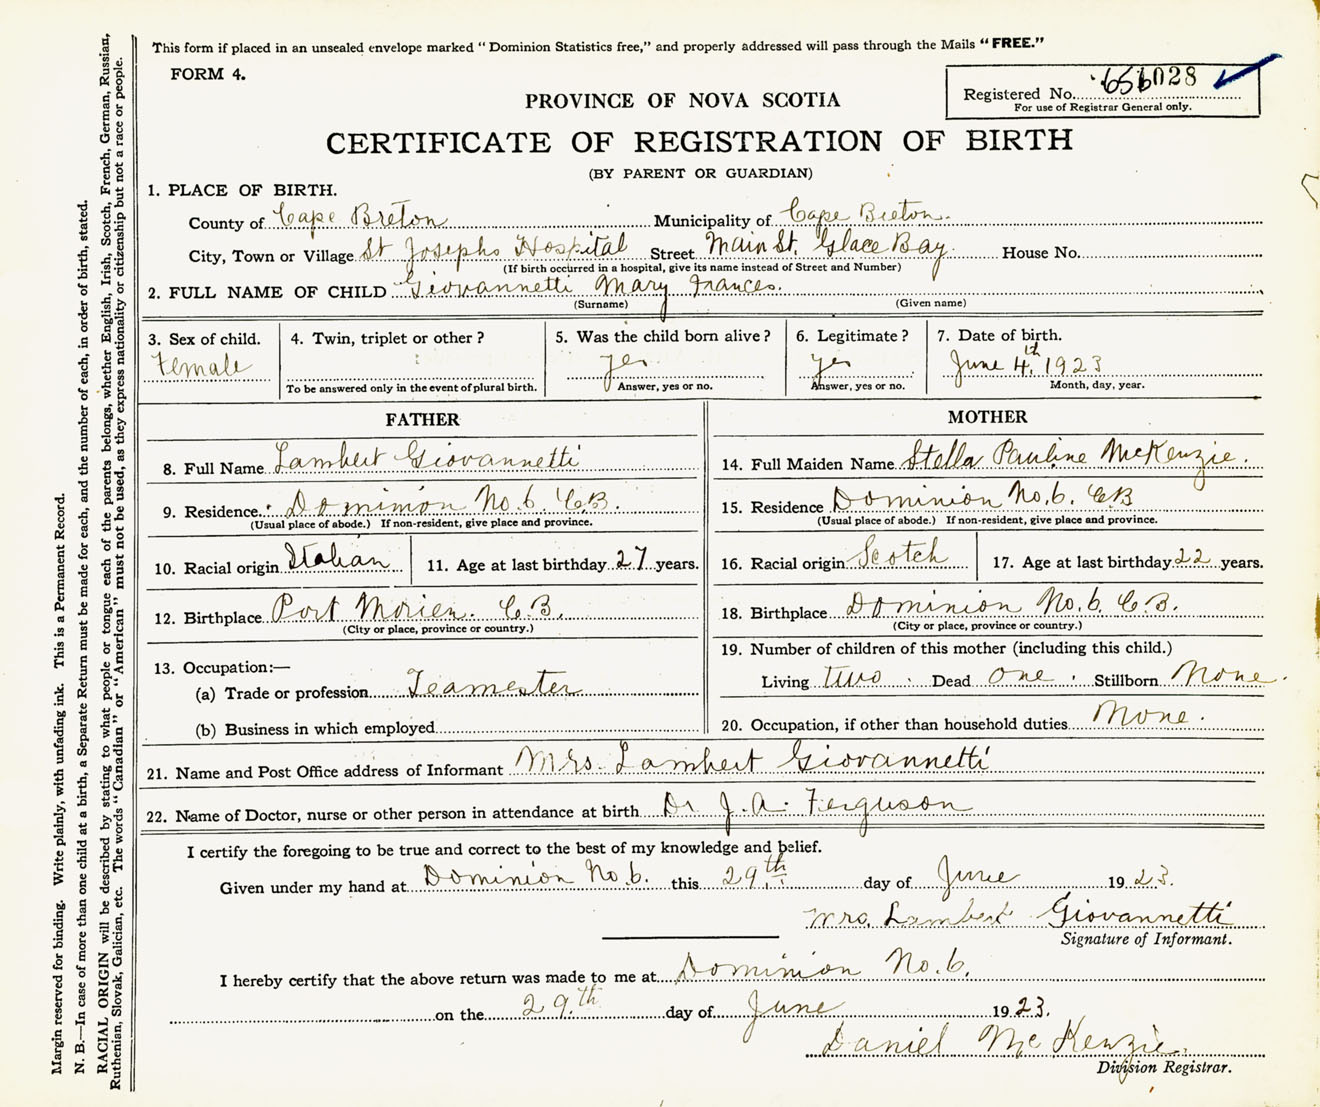 This form if placed in an unsealed envelope marked "Dominion Statistics free," and properly addressed will pass through the Mails "FREE."
FORM 4.
Registered No. 028
For use of Registrar General only.
PROVINCE OF NOVA SCOTIA
CERTIFICATE OF REGISTRATION OF BIRTH
(BY PARENT OR GUARDIAN)
1. PLACE OF BIRTH.
County of Cape Breton Municipality of Cape Breton.
City, Town or Village St Josephs Hospital Street Main St. Glace Bay. House No.
(If birth occurred in a hospital, give its name instead of Street and Number)
2. FULL NAME OF CHILD Giovannetti Mary Frances.
(Surname) (Given name)
3. Sex of child. 4. Twin, triplet or other ? 5. Was the child born alive ? 6. Legitimate ? 7. Date of birth.
Female yes yes June 4th 1923
To be answered only in the event of plural birth. Answer, yes or no. Answer, yes or no. Month, day, year.
FATHER
8. Full Name Lambert Giovannetti
9. Residence Dominion No. 6. C.B.
(Usual place of abode.) If non-resident, give place and province.
10. Racial origin Italian 11. Age at last birthday 27 years.
12. Birthplace Port Morien. C.B.
(City or place, province or country.)
13. Occupation:—
(a) Trade or profession Teamster
(b) Business in which employed
MOTHER
14. Full Maiden Name Stella Pauline McKenzie.
15. Residence Dominion No. 6. CB
(Usual place of abode.) If non-resident, give place and province.
16. Racial origin Scotch 17. Age at last birthday 22 years.
18. Birthplace Dominion No. 6. C.B.
(City or place, province or country.)
19. Number of children of this mother (including this child.)
Living two Dead one Stillborn None.
20. Occupation, if other than household duties None.
21. Name and Post Office address of Informant Mrs. Lambert Giovannetti
22. Name of Doctor, nurse or other person in attendance at birth Dr J. A. Ferguson
I certify the foregoing to be true and correct to the best of my knowledge and belief.
Given under my hand at Dominion No. 6. this 29th day of June 1923.
Mrs. Lambert Giovannetti
Signature of Informant.
I hereby certify that the above return was made to me at Dominion No. 6.
on the 29th day of June 1923.
Daniel McKenzie.
Division Registrar.
Margin reserved for binding. Write plainly, with unfading ink. This is a Permanent Record.
N. B.—In case of more than one child at a birth, a Separate Return must be made for each, and the number of each, in order of birth, stated.
RACIAL ORIGIN will be described by stating to what people or tongue each of the parents belongs, whether English, Irish, Scotch, French, German, Russian,
Ruthenian, Slovak, Galician, etc. The words "Canadian" or "American" must not be used, as they express nationality or citizenship but not a race or people.